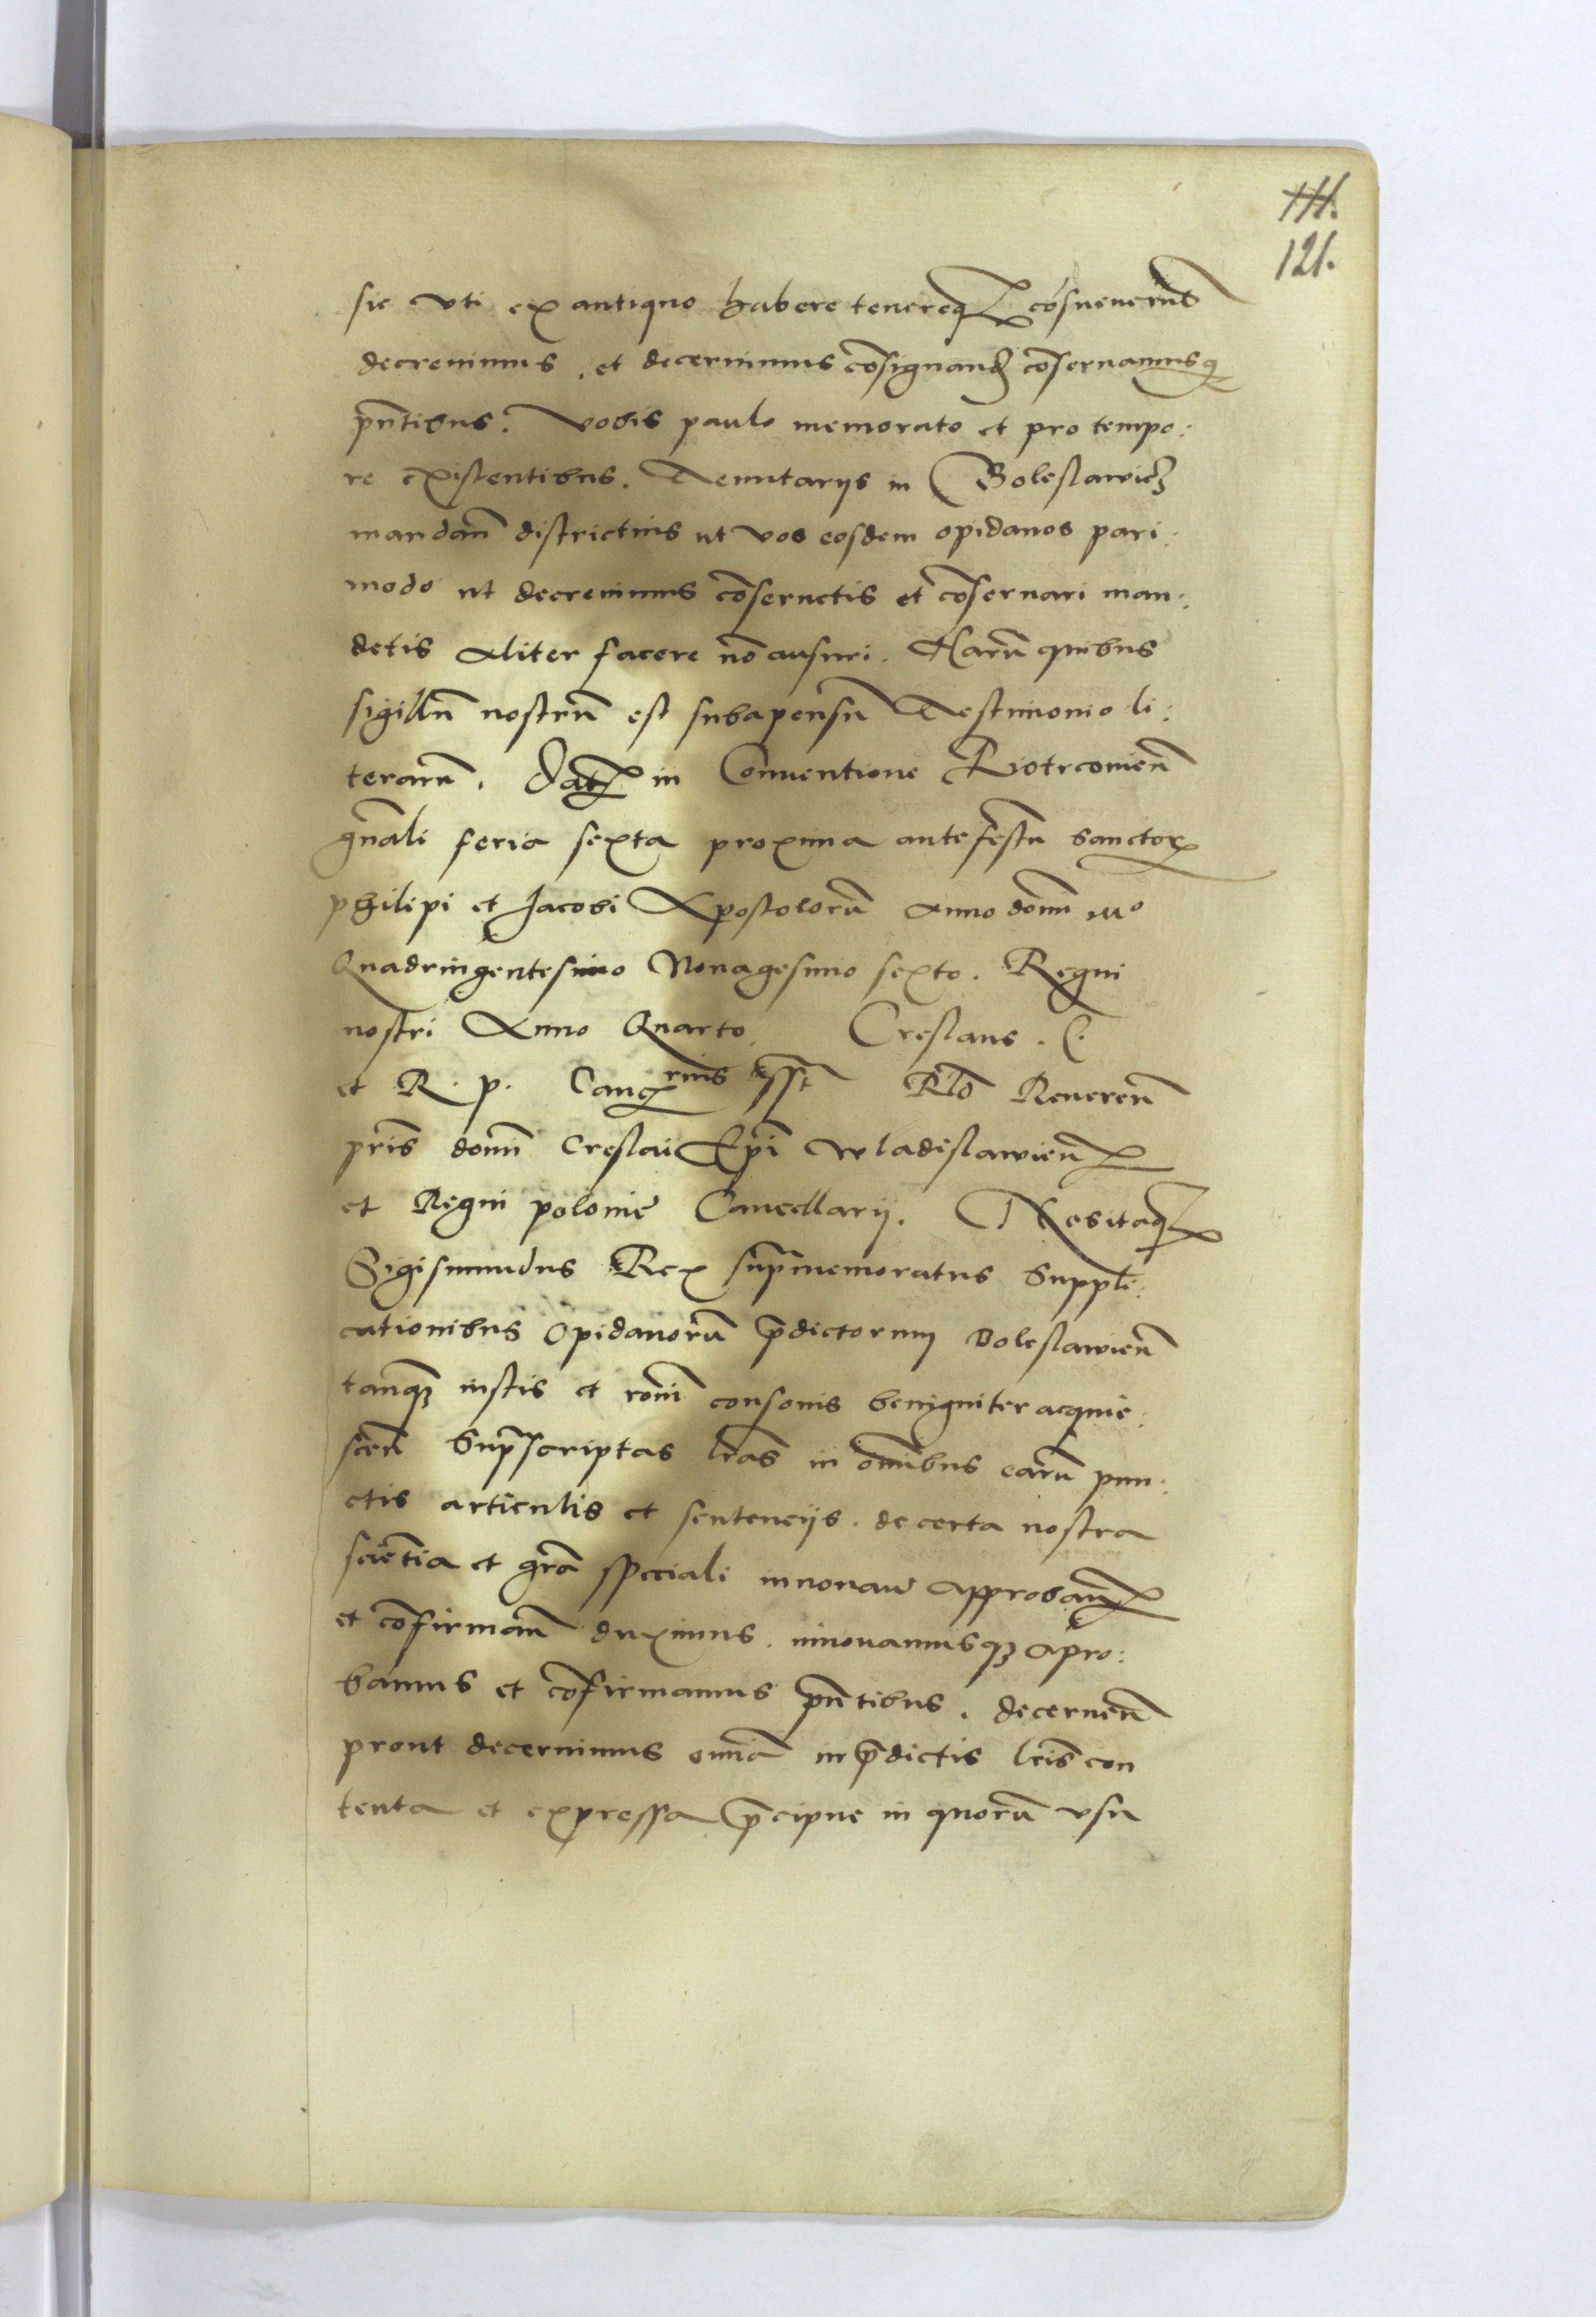 111.
121.
sic vti ex antiquo habere tenereqȝ cōsueuerūt
decreuimus . et decernimus cōsignandꝫ cōseruamusq
pn̄tibus . Vobis paulo memorato et pro tempo:
re existentibus . Tenutarijs in Boleslawiecꝫ
mandan̄ districtius ut vos eosdem opidanos pari:
modo ut decreuimus cōseruetis et cōseruari man:
detis Aliter facere nō ausuri . Harū quibus
sigillū nostrū est subapensū Testimonio li:
terarū . Datꝫ in Conuentione Piotrcouien̄
gn̄ali feria sexta proxima ante festū sanctorꝫ
philipi et Jacobi Apostolorū Anno domī Mº
Quadringentesimo Nonagesimo sexto . Regni
nostri Anno Quarto . Creslaus . E.
et R . p . Cancꝫrius sst Rlō Reueren̄
pris domī Creslai Epī wladislawien̄
et Regni polonie Cancellarij . Nos itaqȝ
Sigismundus Rex supmemoratus Suppli:
cationibus Opidanorū p̄dictorum Boleslawien̄
tanqȝ iustis et ronī consonis benigniter acquie:
scen̄ Sup̄scriptas lr̄as in omībus earū pun:
ctis articulis et sentencijs . de certa nostra
scientia et gr̄a speciali innouan̄ approban̄
et cōfirman̄ duximus . innouamusqȝ apro:
bamus et cōfirmamus pn̄tibus . decernen̄
prout decernimus omīa in p̄dictis lr̄is con
tenta et expressa p̄cipue in quorū vsu